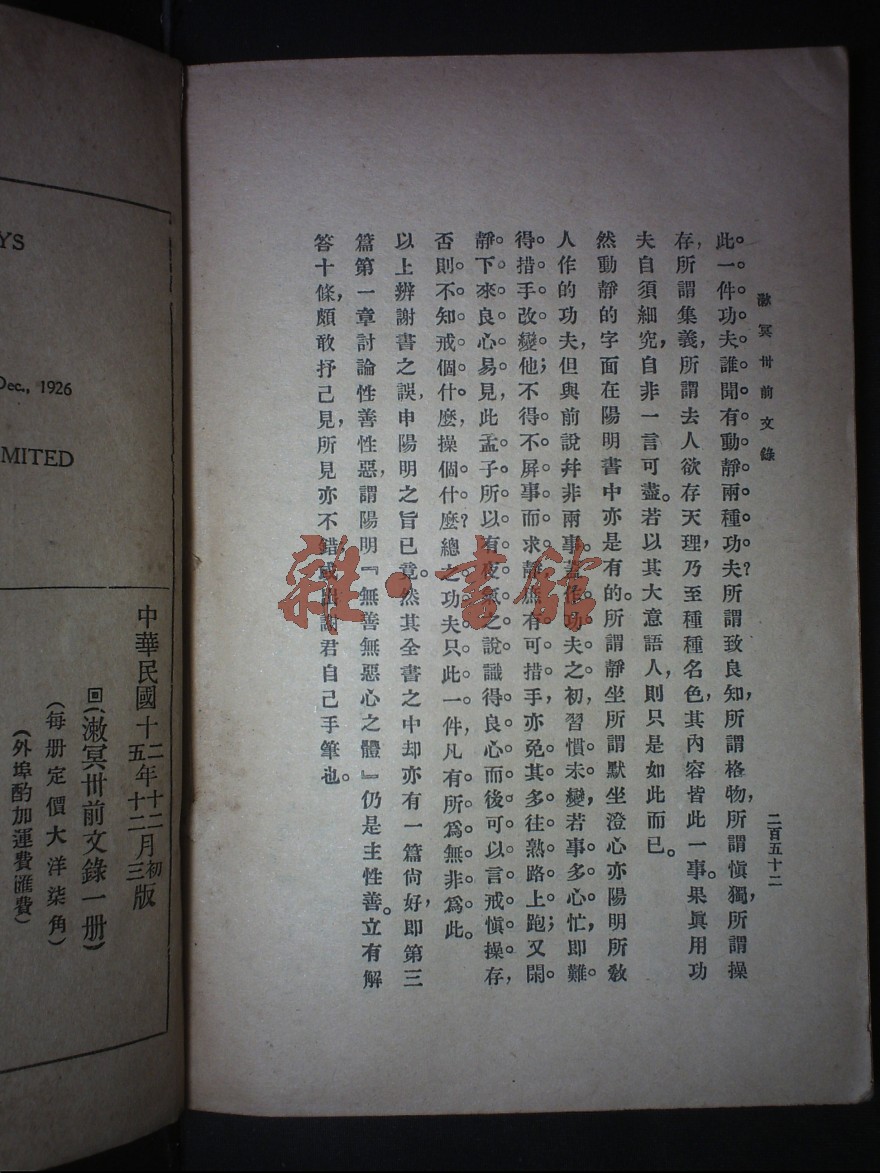 漱冥卅前文錄
二百五十二
此一件功夫誰聞有動靜兩種功夫?所謂致良知,所謂格物,所謂愼獨,所謂操
存,所謂集義,所謂去人欲存天理,乃至種種名色,其內容皆此一事。果眞用功
夫自須細究,自非一言可盡。若以其大意語人,則只是如此而已。
然動靜的字面在陽明書中亦是有的。所謂靜坐所謂默坐澄心亦陽明所敎
人作的功夫,但與前說幷非兩事。蓋作功夫之初,習慣未變,若事多心忙,即難
得措手改變他;不得不屏事而求靜,庶有可措手,亦免其多往熟路上跑;又閑
靜下來良心易見,此孟子所以有夜氣之說。識得良心而後可以言戒愼操存,
否則不知戒個什麼,操個什麼?總之功夫只此一件,凡有所爲無非爲此。
以上辨謝書之誤,申陽明之旨已竟。然其全書之中却亦有一篇尙好,即第三
篇第一章討論性善性惡,謂陽明『無善無惡心之體』仍是主性善。立有解
答十條,頗敢抒己見,所見亦不錯,或出謝君自己手筆也。
雜·書館
YS
Dec., 1926
MITED
中華民國十二年十二月初版
五年十二月三版
回(漱冥卅前文錄一册)
(每册定價大洋柒角)
(外埠酌加運費匯費)